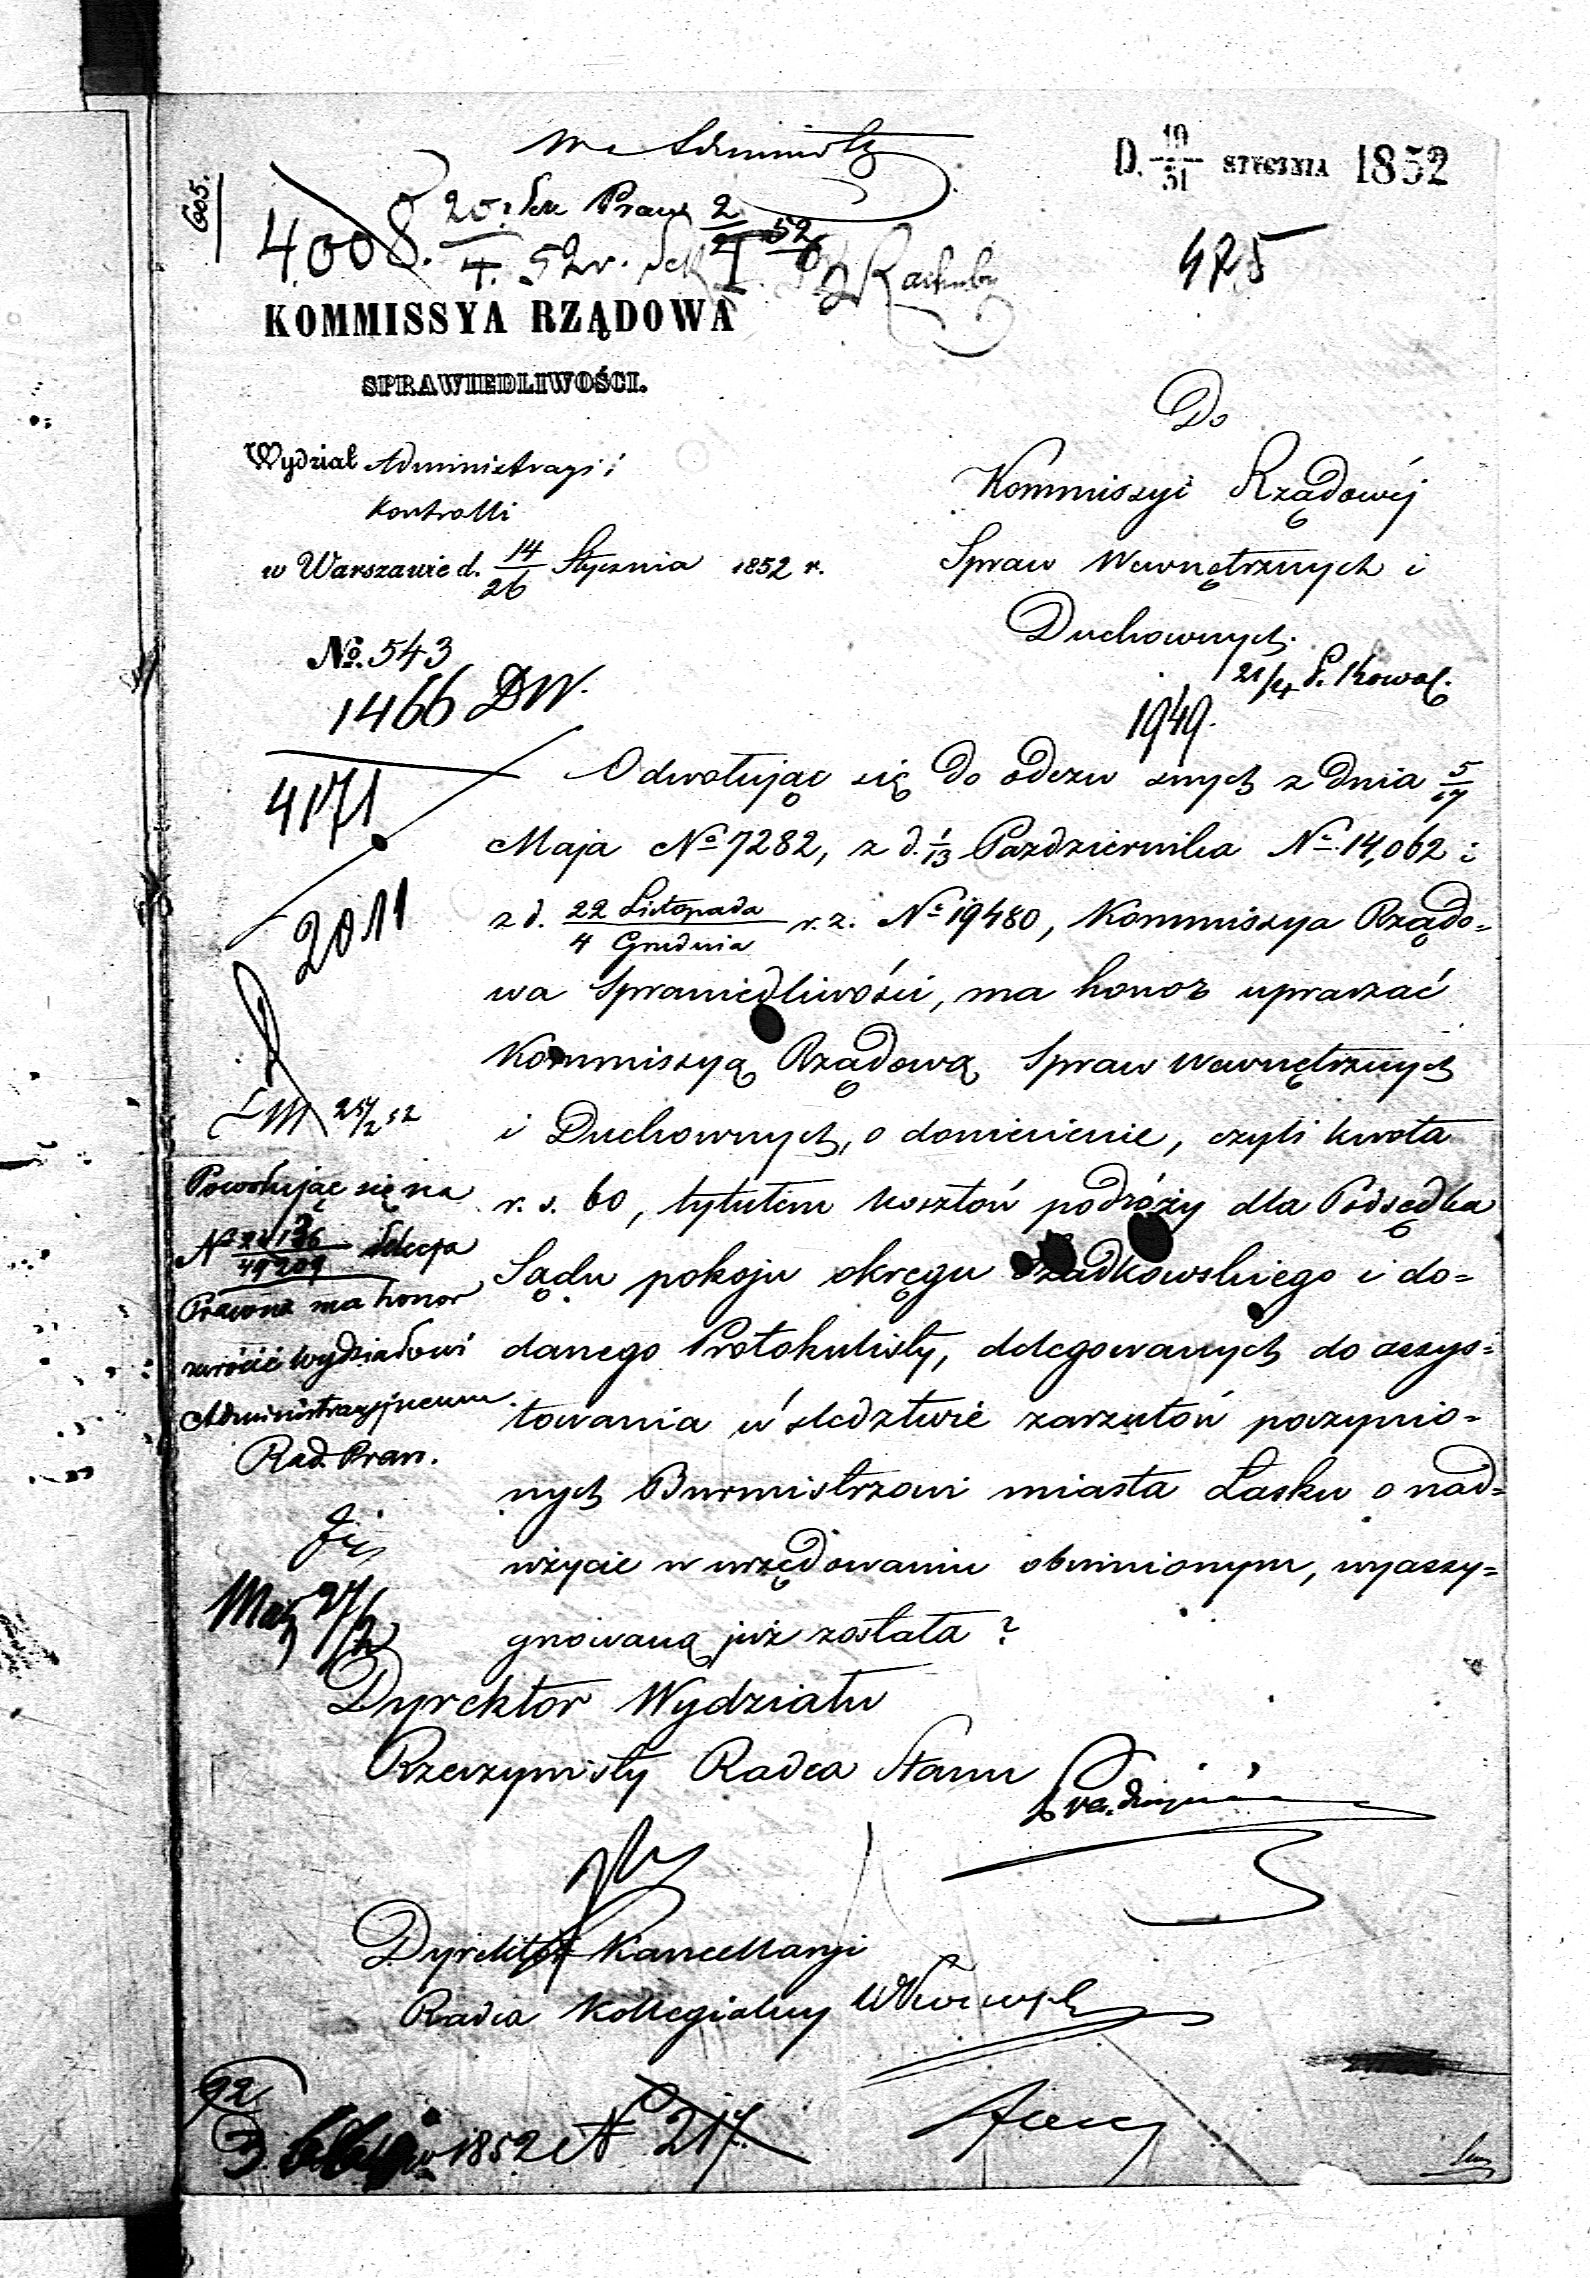 D. 19/31 STYCZNIA 1852
605.
4008.
475
KOMMISSYA RZĄDOWA
SPRAWIEDLIWOŚCI.
Wydział Administracyi i
Kontrolli
w Warszawie d. 14/26 Stycznia 1852 r.
No. 543
1466 DW.
4171
2011
Do
Kommissyi Rządowéj
Spraw Wewnętrznych i
Duchownych.
1949.
Odwołując się do odezw swych z dnia 5/17
Maja No 7282, z d. 1/13 Października No 14,062 i
z d. 22 Listopada/4 Grudnia r. z. No 19480, Kommissya Rządo-
wa Sprawiedliwości, ma honor upraszać
Kommissyą Rządową Spraw Wewnętrznych
i Duchownych, o doniesienie, czyli kwota
r. s. 60, tytułem kosztów podróży dla Podsędka
Sądu pokoju okręgu Szadkowskiego i do-
danego Protokulisty, delegowanych do assys-
towania w śledztwie zarzutów poczynio-
nych Burmistrzowi miasta Łasku o nad-
użycie w urzędowaniu obwinionym, wyassy-
gnowaną już została?
Powołując się na
Sekcya
Prawna ma honor
zwrócić Wydziałowi
Administracyjnemu.
Rad. Praw.
Dyrektor Wydziału
Rzeczywisty Radca Stanu
Dyrektor Kancellaryi
Radca Kollegialny
92
1852 N 217.